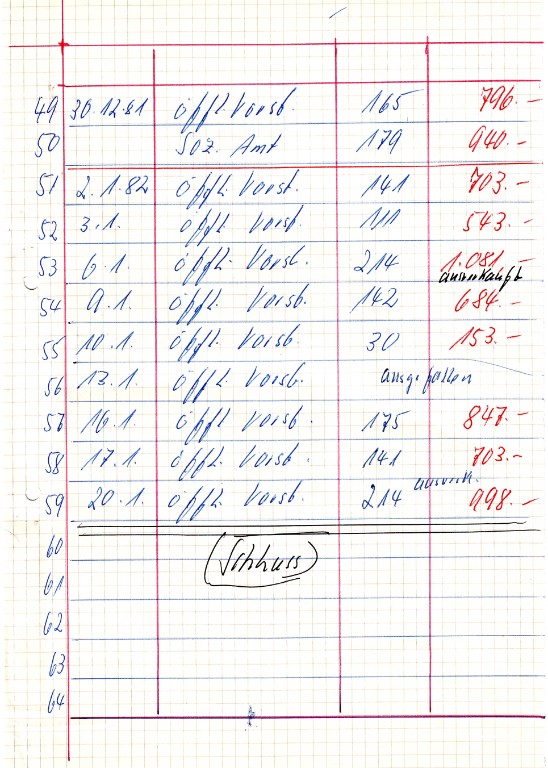 49 30.12.81 öffl. Vorst. 165 796.-
50 Soz. Amt 179 940.-
51 2.1.82 öffl. Vorst. 141 703.-
52 3.1. öffl. Vorst. 111 543.-
53 6.1 öffl. Vorst. 214 1.081.-
ausverkauft
54 9.1. öffl. Vorst. 142 684.-
55 10.1. öffl. Vorst. 30 153.-
56 13.1. öffl. Vorst. ausgefallen
57 16.1. öffl. Vorst. 175 847.-
58 17.1. öffl. Vorst. 141 703.-
ausverk.
59 20.1. öffl. Vorst. 214 998.-
60 (Schluss)
61
62
63
64